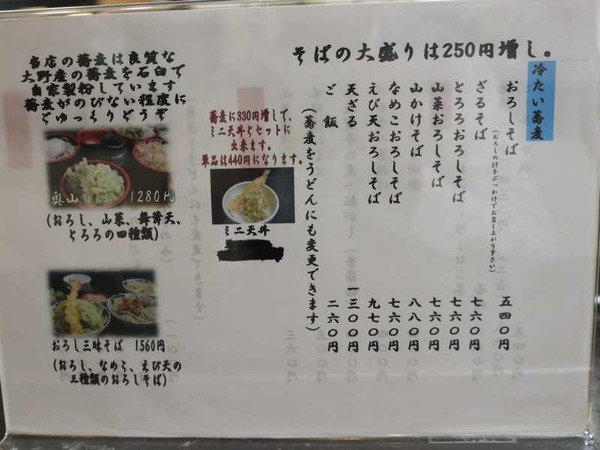 そばの大盛りは250円増し。
冷たい蕎麦
おろしそば 五四〇円
(おろしの汁をぶっかけてお召し上がり下さい)
ざるそば 七六〇円
とろろおろしそば 七六〇円
山菜おろしそば 七六〇円
山かけそば 八八〇円
なめこおろしそば 七六〇円
えび天おろしそば 九七〇円
天ざる 一三〇〇円
ご飯 二六〇円
(蕎麦をうどんにも変更できます)
蕎麦に330円増しで、
ミニ天丼とセットに
出来ます。
単品は440円になります。
ミニ天丼
当店の蕎麦は良質な
大野産の蕎麦を石臼で
自家製粉しています
蕎麦がのびない程度に
ごゆっくりどうぞ
奥山 1280円
(おろし、山菜、舞茸天、
とろろの四種類)
おろし三昧そば 1560円
(おろし、なめこ、えび天の
三種類のおろしそば)